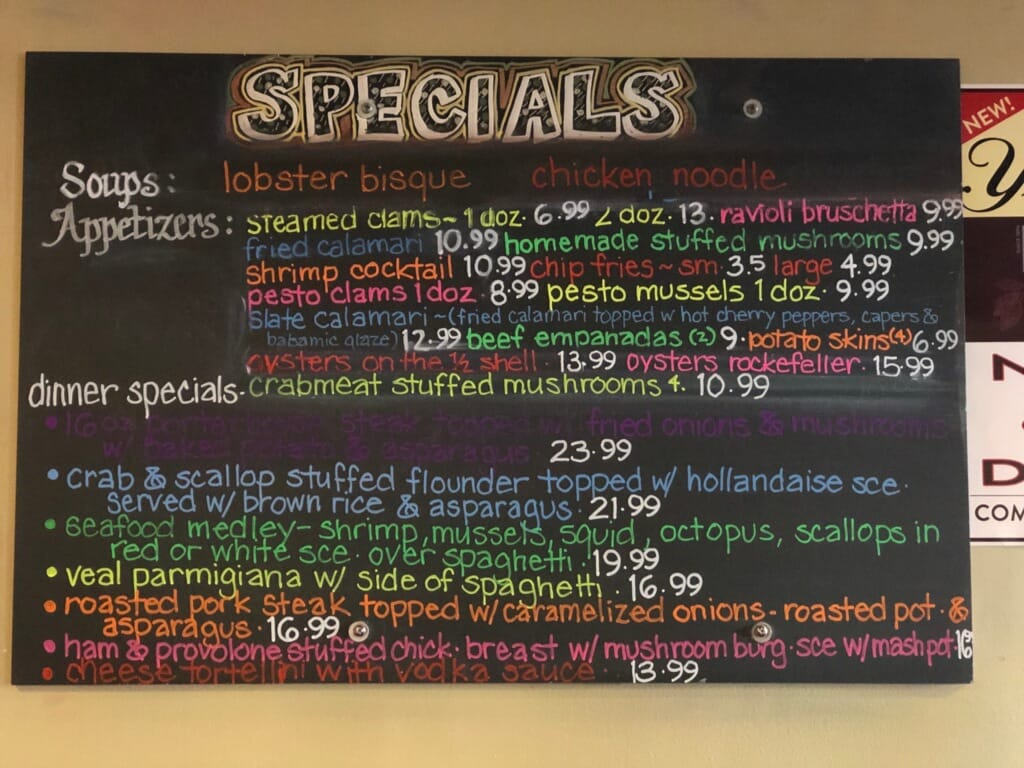 SPECIALS
Soups: lobster bisque chicken noodle
Appetizers: steamed clams~ 1 doz. 6.99 2 doz. 13. ravioli bruschetta 9.99
fried calamari 10.99 homemade stuffed mushrooms 9.99
shrimp cocktail 10.99 chip fries~sm. 3.5 large 4.99
pesto clams 1 doz. 8.99 pesto mussels 1 doz. 9.99
slate calamari~(fried calamari topped w/ hot cherry peppers, capers &
balsamic glaze) 12.99 beef empanadas (2) 9. potato skins (4) 6.99
oysters on the ½ shell. 13.99 oysters rockefeller. 15.99
dinner specials. crabmeat stuffed mushrooms 4. 10.99
• 16 oz porterhouse steak topped w/ fried onions & mushrooms
w/ baked potato & asparagus 23.99
• crab & scallop stuffed flounder topped w/ hollandaise sce.
served w/ brown rice & asparagus. 21.99
• seafood medley- shrimp, mussels, squid, octopus, scallops in
red or white sce. over spaghetti. 19.99
• veal parmigiana w/ side of spaghetti. 16.99
• roasted pork steak topped w/ caramelized onions- roasted pot. &
asparagus. 16.99
• ham & provolone stuffed chick. breast w/ mushroom burg. sce w/ mash pot. 16
• cheese tortellini with vodka sauce. 13.99
NEW!
Y
N
D
COM